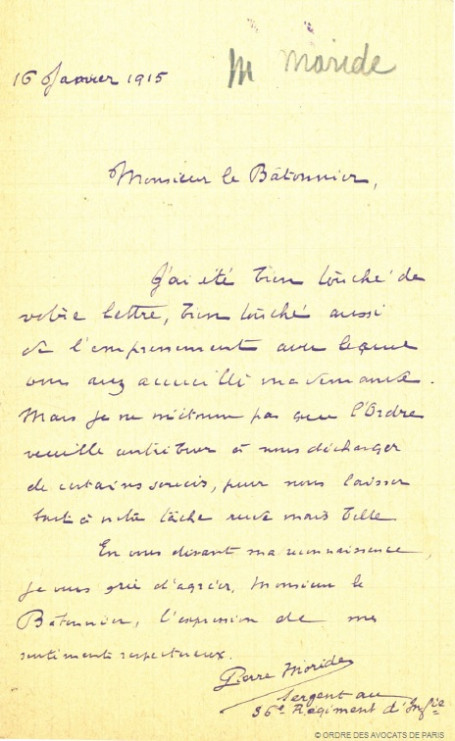 16 Janvier 1915
M Moride
Monsieur le Bâtonnier,
J'ai été bien touché de
votre lettre, bien touché aussi
de l'empressement avec lequel
vous avez accueilli ma demande.
Mais je ne m'étonne pas que l'Ordre
veuille contribuer à nous décharger
de certains soucis, pour nous laisser
tout à notre tâche rude mais belle
En vous disant ma reconnaissance,
je vous prie d'agréer, Monsieur le
Bâtonnier, l'expression de mes
sentiments respectueux.
Pierre Moride
Sergent au
36e Régiment d'Infie
© ORDRE DES AVOCATS DE PARIS